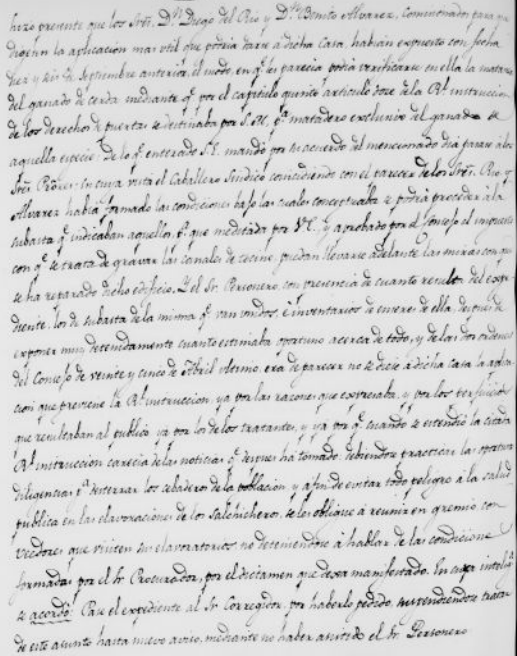 hizo presente que los Sres. Dn. Diego del Rio y Dn. Benito Alvarez, Comisionados para que
digesen la aplicacion mas util que podria darse a dicha Casa, habian expuesto con fecha
diez y seis de Septiembre anterior, el modo, en qe. les parecia podia verificarse en ella la matanza
del ganado de cerda mediante qe. por el capitulo quinto articulo doce de la Rl. instruccion
de los derechos de puertas se destinaba por S.M. pa. matadero exclusivo del ganado de
aquella especie. De lo qe. enterado S.E. mandó por su acuerdo del mencionado dia pasase á los
Sres. Prores. En cuya vista el Caballero Sindico coincidiendo con el parecer de los Sres. Rio y
Alvarez habia formado las condiciones bajo las cuales conceptuaba se podria proceder á la
subasta qe. indicaban aquellos, pa. que meditada por V.E. y aprobado por el Consejo el impuesto
con qe. se trata de gravar las canales de tocino, puedan llevarse adelante las miras con que
se ha reparado dicho edificio. Y el Sr. Personero, con presencia de cuanto resulta del expe-
diente, los de subasta de la misma qe. van unidos, é inventarios de enseres de ella, despues de
exponer muy detenidamente cuanto estimaba oportuno acerca de todo, y de las dos ordenes
del Consejo de veinte y cinco de Abril ultimo, era de parecer no se diese á dicha Casa la aplica-
cion que previene la Rl. instruccion, ya por las razones que expresaba, y por los perjuicios
que resultaban al publico ya por los de los tratantes, y ya por qe. cuando se estendió la citada
Rl. instruccion carecia de las noticias qe. despues ha tomado, debiendose practicar las oportunas
diligencias pa. desterrar los cebaderos de la poblacion, y á fin de evitar todo peligro á la salud
publica en las elavoraciones de los salchicheros, se les obligue á reunir en gremio, con
veedores que visiten sus elavoratorios no deteniendose á hablar de las condiciones
formadas por el Sr. Procurador, por el dictamen que dexa manifestado. En cuya inteliga.
se acordó: Pase el expediente al Sr. Corregidor, por haberlo pedido, suspendiendose tratar
de este asunto hasta nuevo aviso, mediante no haber asistido el Sr. Personero